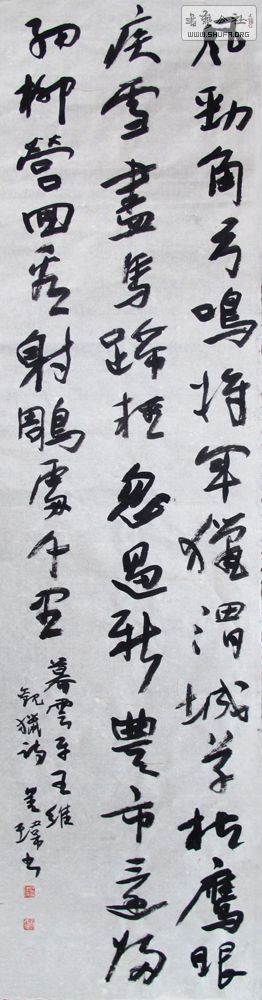 書藝公社
WWW.SHUFA.ORG
風勁角弓鳴将军獵渭城草枯鷹眼
疾雪盡馬蹄輕忽過新豐市還歸
細柳營回看射鵰處千里
暮雲平王維
觀獵詩
瑋书